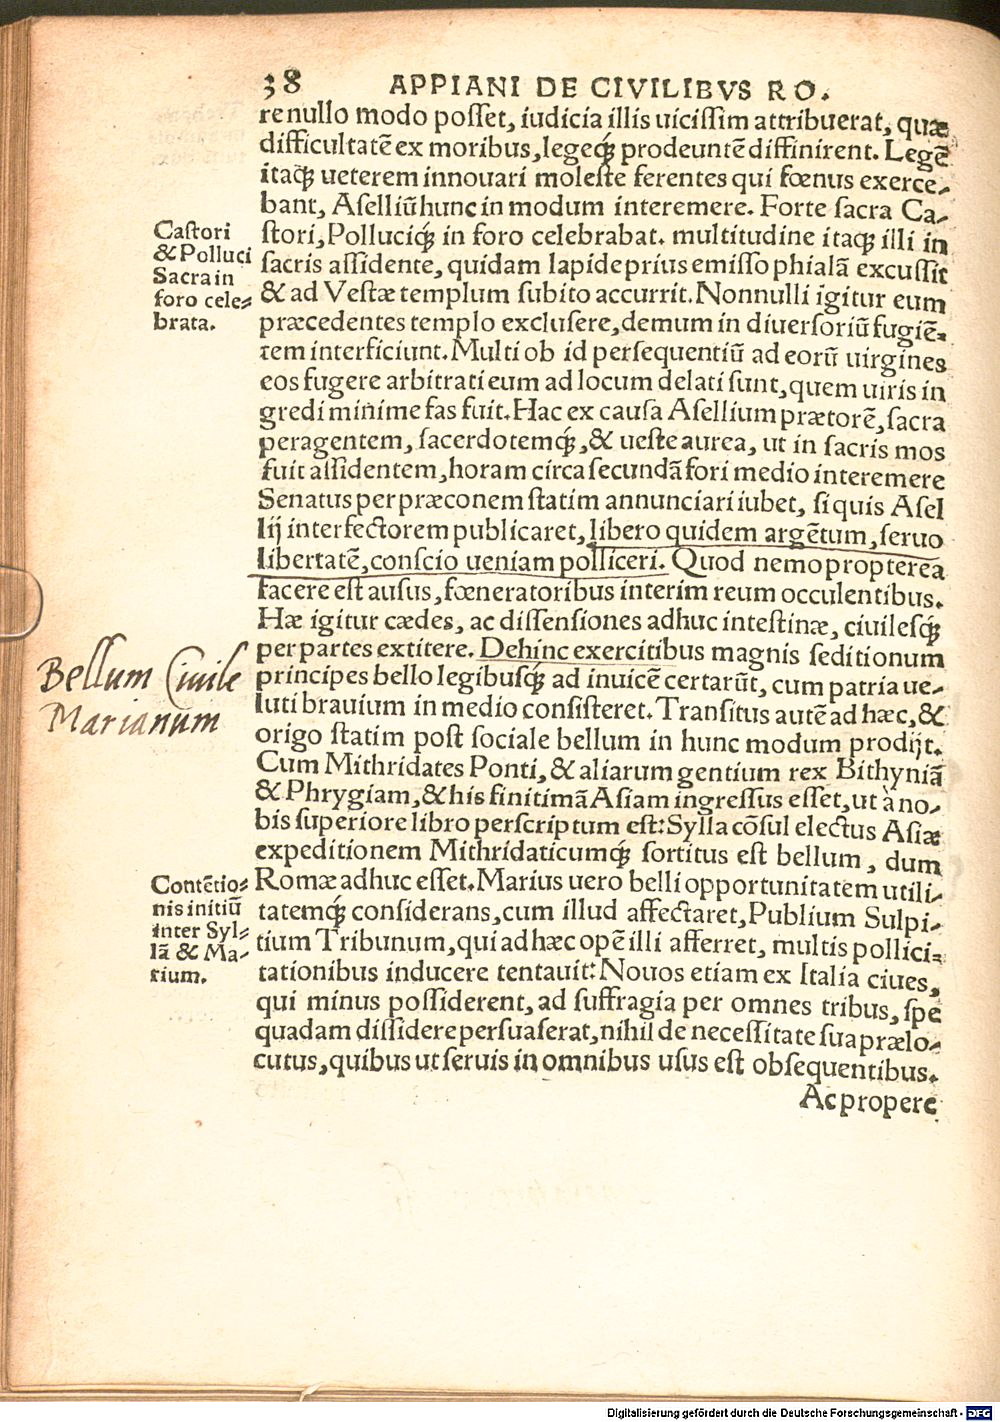 38 APPIANI DE CIVILIBVS RO.
re nullo modo posset, iudicia illis uicissim attribuerat, quæ
difficultatē ex moribus, legeq́; prodeuntē diffinirent. Legē
itaq; ueterem innouari moleste ferentes qui fœnus exerce-
bant, Aselliū hunc in modum interemere. Forte sacra Ca-
stori, Polluciq́; in foro celebrabat. multitudine itaq; illi in
sacris assidente, quidam lapide prius emisso phialā excussit
& ad Vestæ templum subito accurrit. Nonnulli igitur eum
præcedentes templo exclusere, demum in diuersoriū fugiē-
tem interficiunt. Multi ob id persequentiū ad eorū uirgines
eos fugere arbitrati eum ad locum delati sunt, quem uiris in
gredi minime fas fuit. Hac ex causa Asellium prætorē, sacra
peragentem, sacerdotemq́;, & ueste aurea, ut in sacris mos
fuit assidentem, horam circa secundā fori medio interemere
Senatus per præconem statim annunciari iubet, si quis Asel
lij interfectorem publicaret, libero quidem argētum, seruo
libertatē, conscio ueniam polliceri. Quod nemo propterea
facere est ausus, fœneratoribus interim reum occulentibus.
Hæ igitur cædes, ac dissensiones adhuc intestinæ, ciuilesq́;
per partes extitere. Dehinc exercitibus magnis seditionum
principes bello legibusq́; ad inuicē certarūt, cum patria ue-
luti brauium in medio consisteret. Transitus autē ad hæc, &
origo statim post sociale bellum in hunc modum prodijt.
Cum Mithridates Ponti, & aliarum gentium rex Bithyniā
& Phrygiam, & his finitimā Asiam ingressus esset, ut à no-
bis superiore libro perscriptum est: Sylla cōsul electus Asiæ
expeditionem Mithridaticumq́; sortitus est bellum, dum
Romæ adhuc esset. Marius uero belli opportunitatem utili-
tatemq́; considerans, cum illud affectaret, Publium Sulpi-
tium Tribunum, qui ad hæc opē illi afferret, multis pollici-
tationibus inducere tentauit: Nouos etiam ex Italia ciues,
qui minus possiderent, ad suffragia per omnes tribus, spe
quadam dissidere persuaserat, nihil de necessitate sua prælo-
cutus, quibus ut seruis in omnibus usus est obsequentibus.
Ac propere
Castori
& Polluci
Sacra in
foro cele-
brata.
Bellum Ciuile
Marianum
Contētio-
nis initiū
inter Syl-
lā & Ma-
rium.
Digitalisierung gefördert durch die Deutsche Forschungsgemeinschaft - DFG